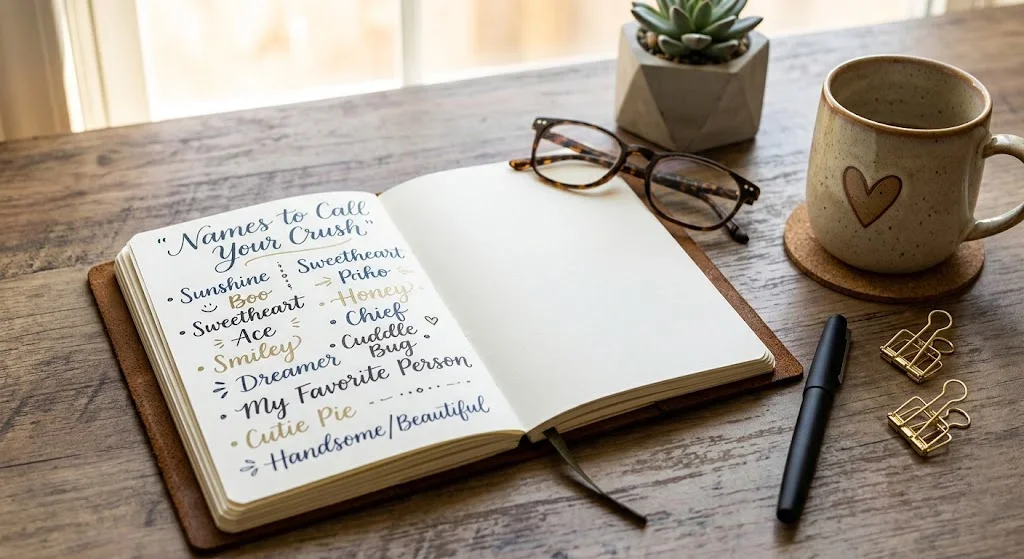 "Names to Call
Your Crush"
Sunshine
Boo
Sweetheart
Ace
Smiley
Sweetheart
Priho
Honey
Chief
Cuddle
Bug
Dreamer
My Favorite Person
Cutie Pie
Handsome/Beautiful